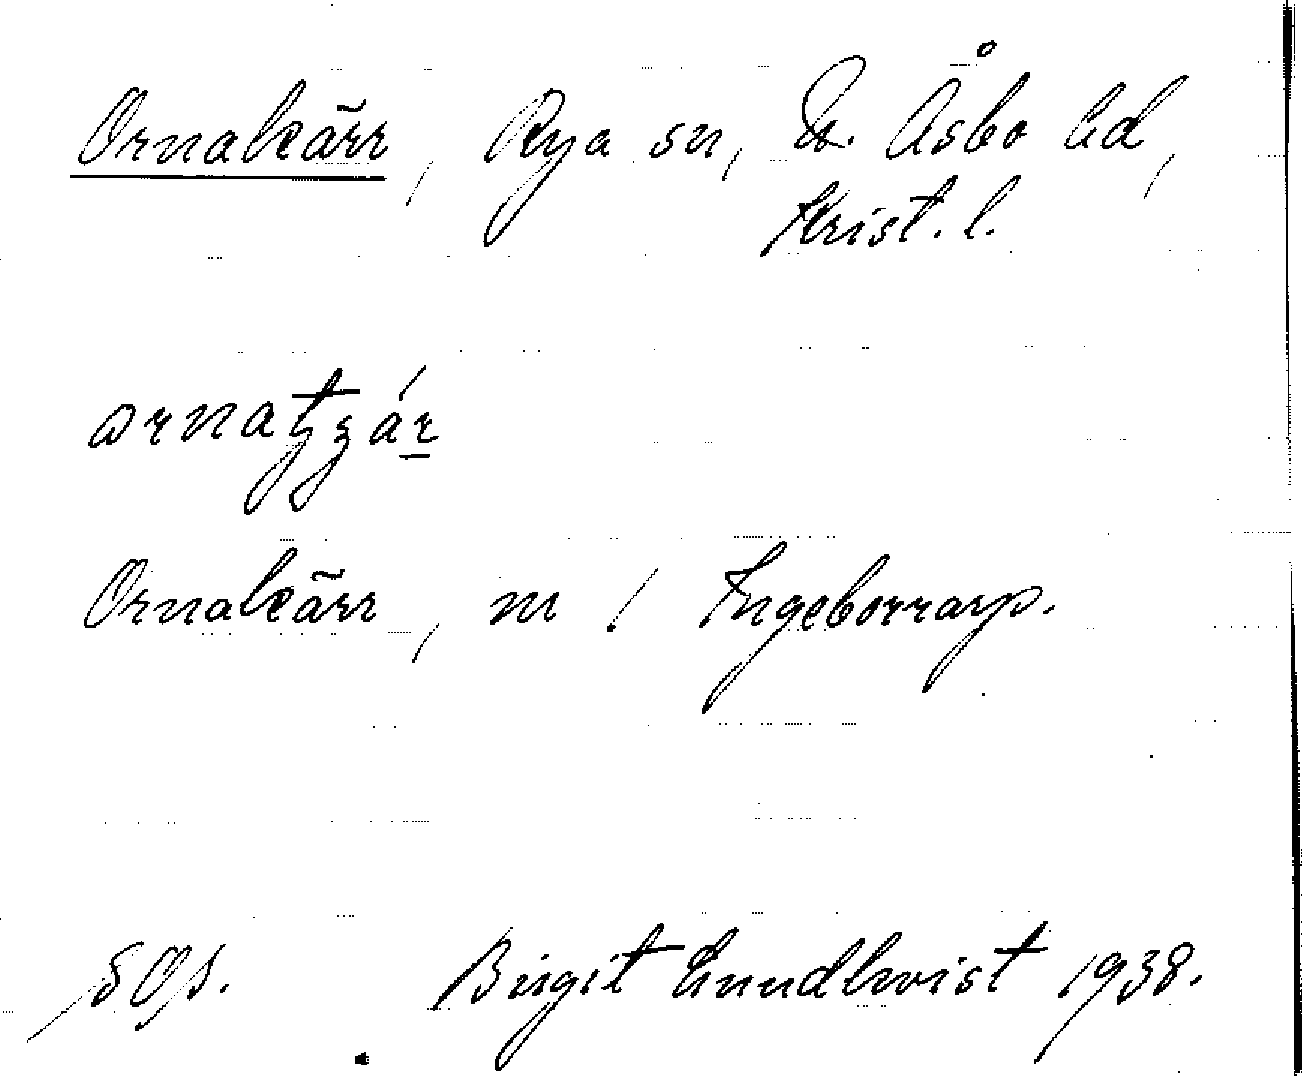 Ornakärr, Rya sn, N. Åsbo hd,
Krist. l.
Ornakärr, m / Ingeborrarp.
SOS. Birgit Lundkvist 1938.